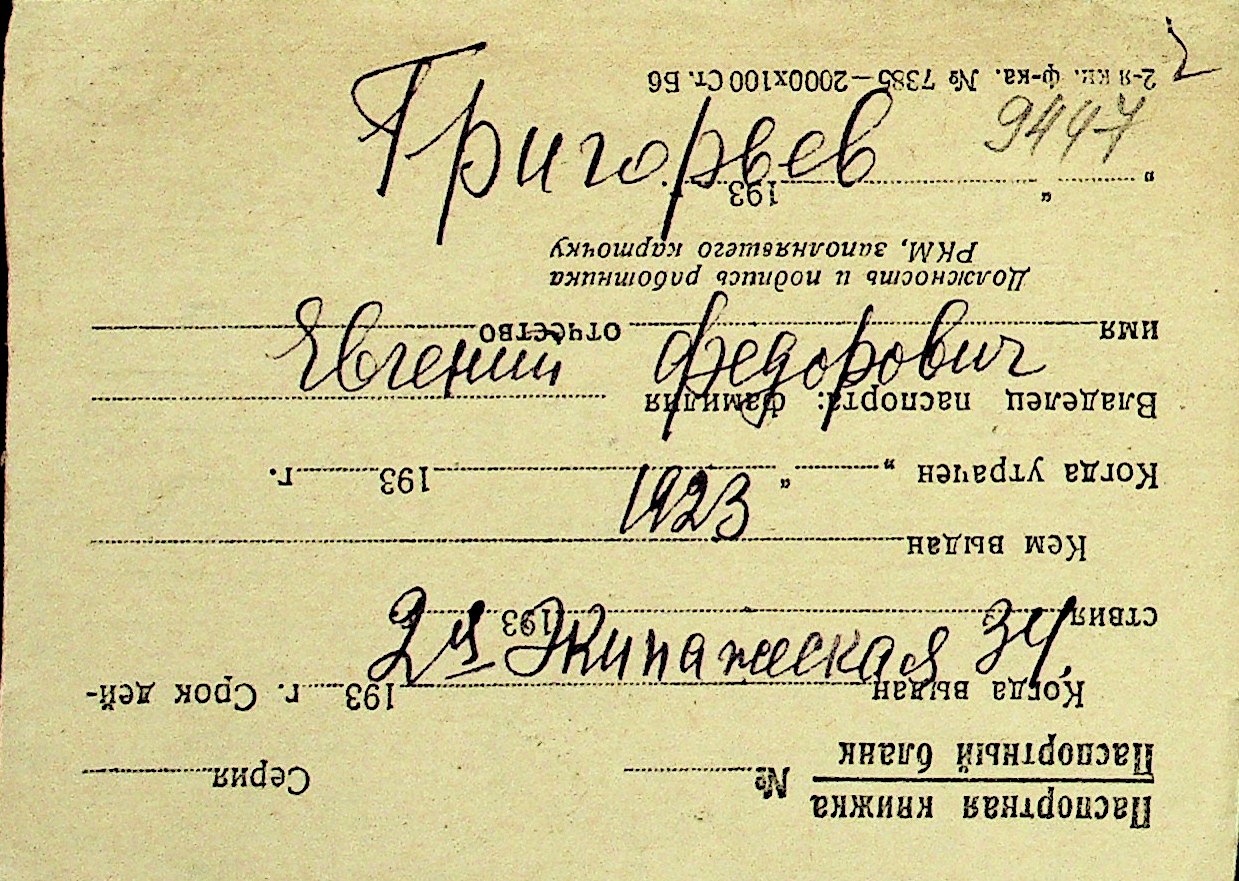 2
9447
Григорьев
Евгений Федорович
1923
2я Экипажеская 34.
Паспортная книжка
Паспортный бланк № Серия
Когда выдан 193 г. Срок дей-
ствия 193
Кем выдан
Когда утрачен „ “ 193 г.
Владелец паспорта: фамилия
имя отчество
Должность и подпись работника
РКМ, заполнявшего карточку
„ “ 193
2-я кн. ф-ка. № 7385—2000х100 Ст. Б6